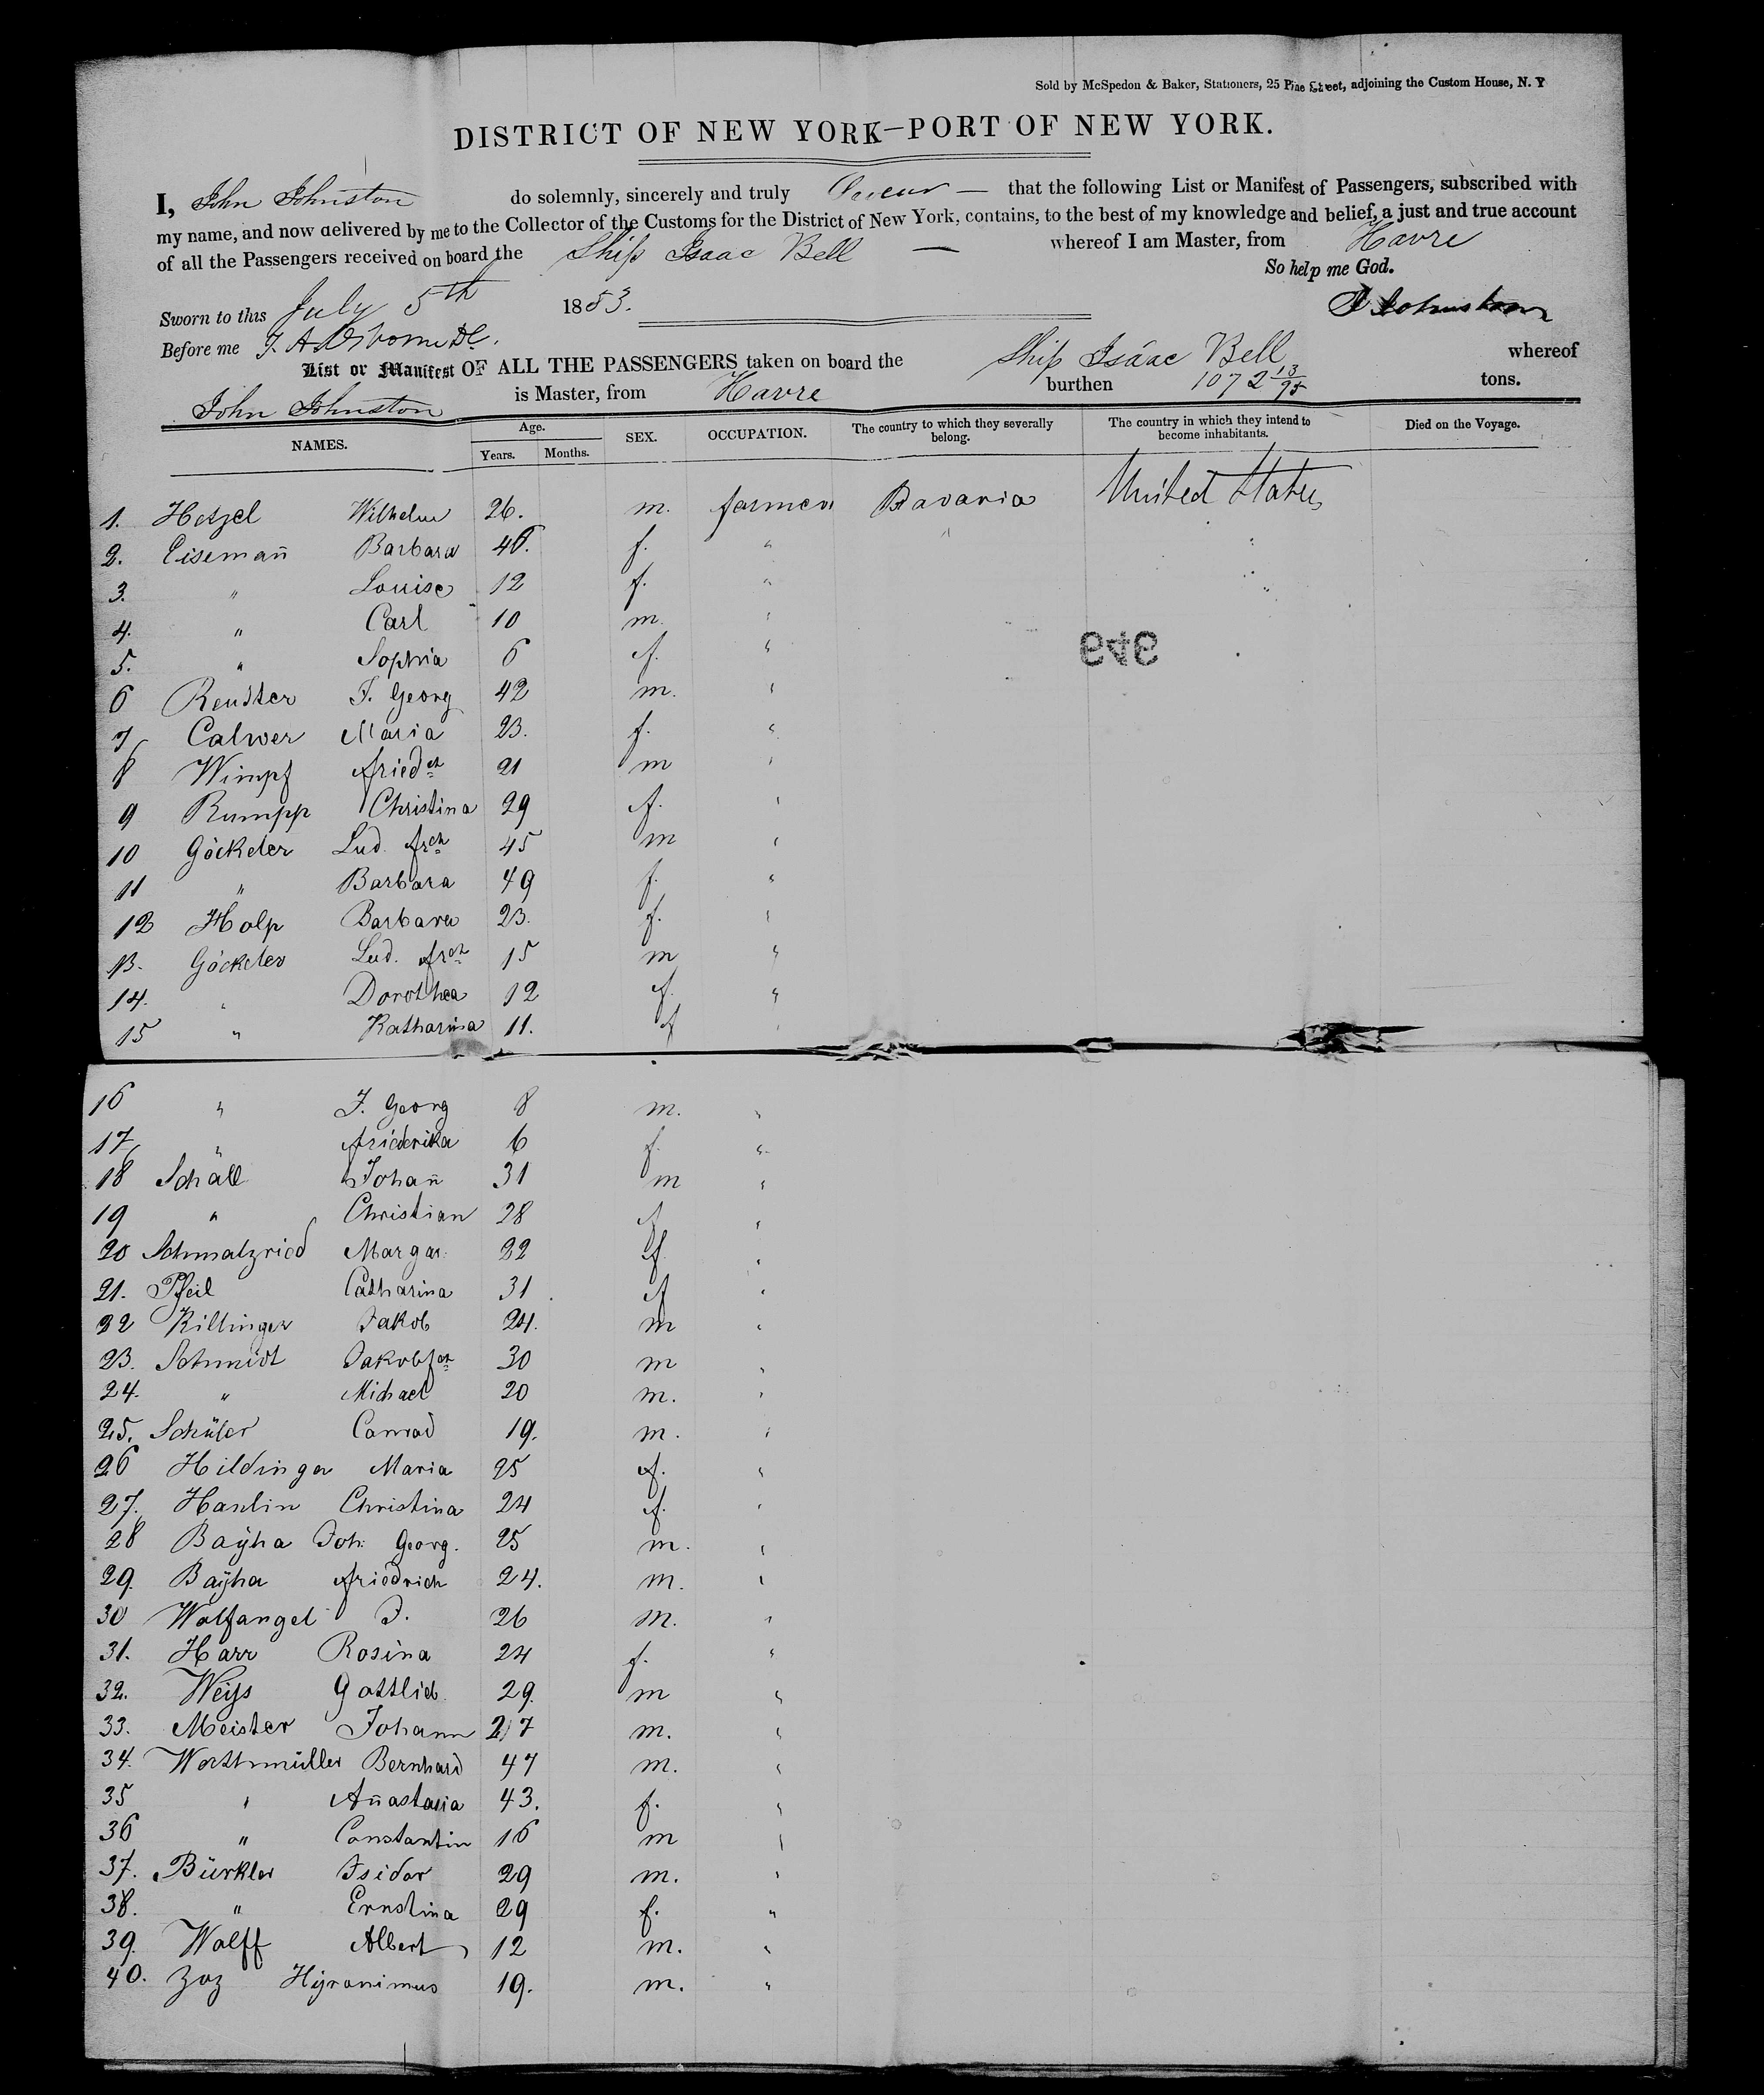 Sold by McSpedon & Baker, Stationers, 25 Pine Street, adjoining the Custom House, N. Y
DISTRICT OF NEW YORK–PORT OF NEW YORK.
I, John Johnston do solemnly, sincerely and truly Swear — that the following List or Manifest of Passengers, subscribed with
my name, and now delivered by me to the Collector of the Customs for the District of New York, contains, to the best of my knowledge and belief, a just and true account
of all the Passengers received on board the Ship Isaac Bell — whereof I am Master, from Havre
So help me God.
Sworn to this July 5th 1853. J Johnston
Before me
List or Manifest OF ALL THE PASSENGERS taken on board the Ship Isaac Bell whereof
John Johnston is Master, from Havre burthen 1072 13/95 tons.
NAMES. Age. Years. Months. SEX. OCCUPATION. The country to which they severally belong. The country in which they intend to become inhabitants. Died on the Voyage.
1. Hetzel Wilhelm 26. m. farmer Bavaria United States
2. Eisemañ Barbara 46. f. "
3. " Louise 12 f. "
4. " Carl 10 m. "
5. " Sophia 6 f. "
949
6 Reudter J. Georg 42 m. "
7 Calwer Maria 23. f. "
8 Wimpf Friedch 21 m "
9 Rumpp Christina 29 f. "
10 Göckeler Lud. Frch 45 m "
11 " Barbara 49 f. "
12 Holp Barbara 23. f. "
13. Göckeler Lud. Frch 15 m "
14. " Dorothea 12 f. "
15 " Katharina 11. f "
16 " J. Georg 8 m. "
17 " Friderika 6 f. "
18 Schall Johañ 31 m "
19 " Christian 28 f "
20 Schmalzried Margar. 22 f. "
21. Pfeil Catharina 31 f "
22 Killinger Jakob 24. m "
23. Schmidt Jakob 30 m "
24. " Michael 20 m. "
25. Schüler Conrad 19. m. "
26 Hildinger Maria 25 f. "
27. Hanlin Christina 24 f. "
28 Baÿha Joh: Georg. 25 m. "
29. Baÿha Friedrich 24. m. "
30 Wolfangel J. 26 m. "
31. Harr Rosina 24 f. "
32. Weiss Gottlieb 29. m "
33. Meister Johann 27 m. "
34. Worthmüller Bernhard 47 m. "
35 " Añastasia 43. f. "
36 " Constantin 16 m "
37. Bürkler Isidor 29 m. "
38. " Ernstina 29 f. "
39. Wolff Albert 12 m. "
40. Zoz Hÿronimus 19. m. "